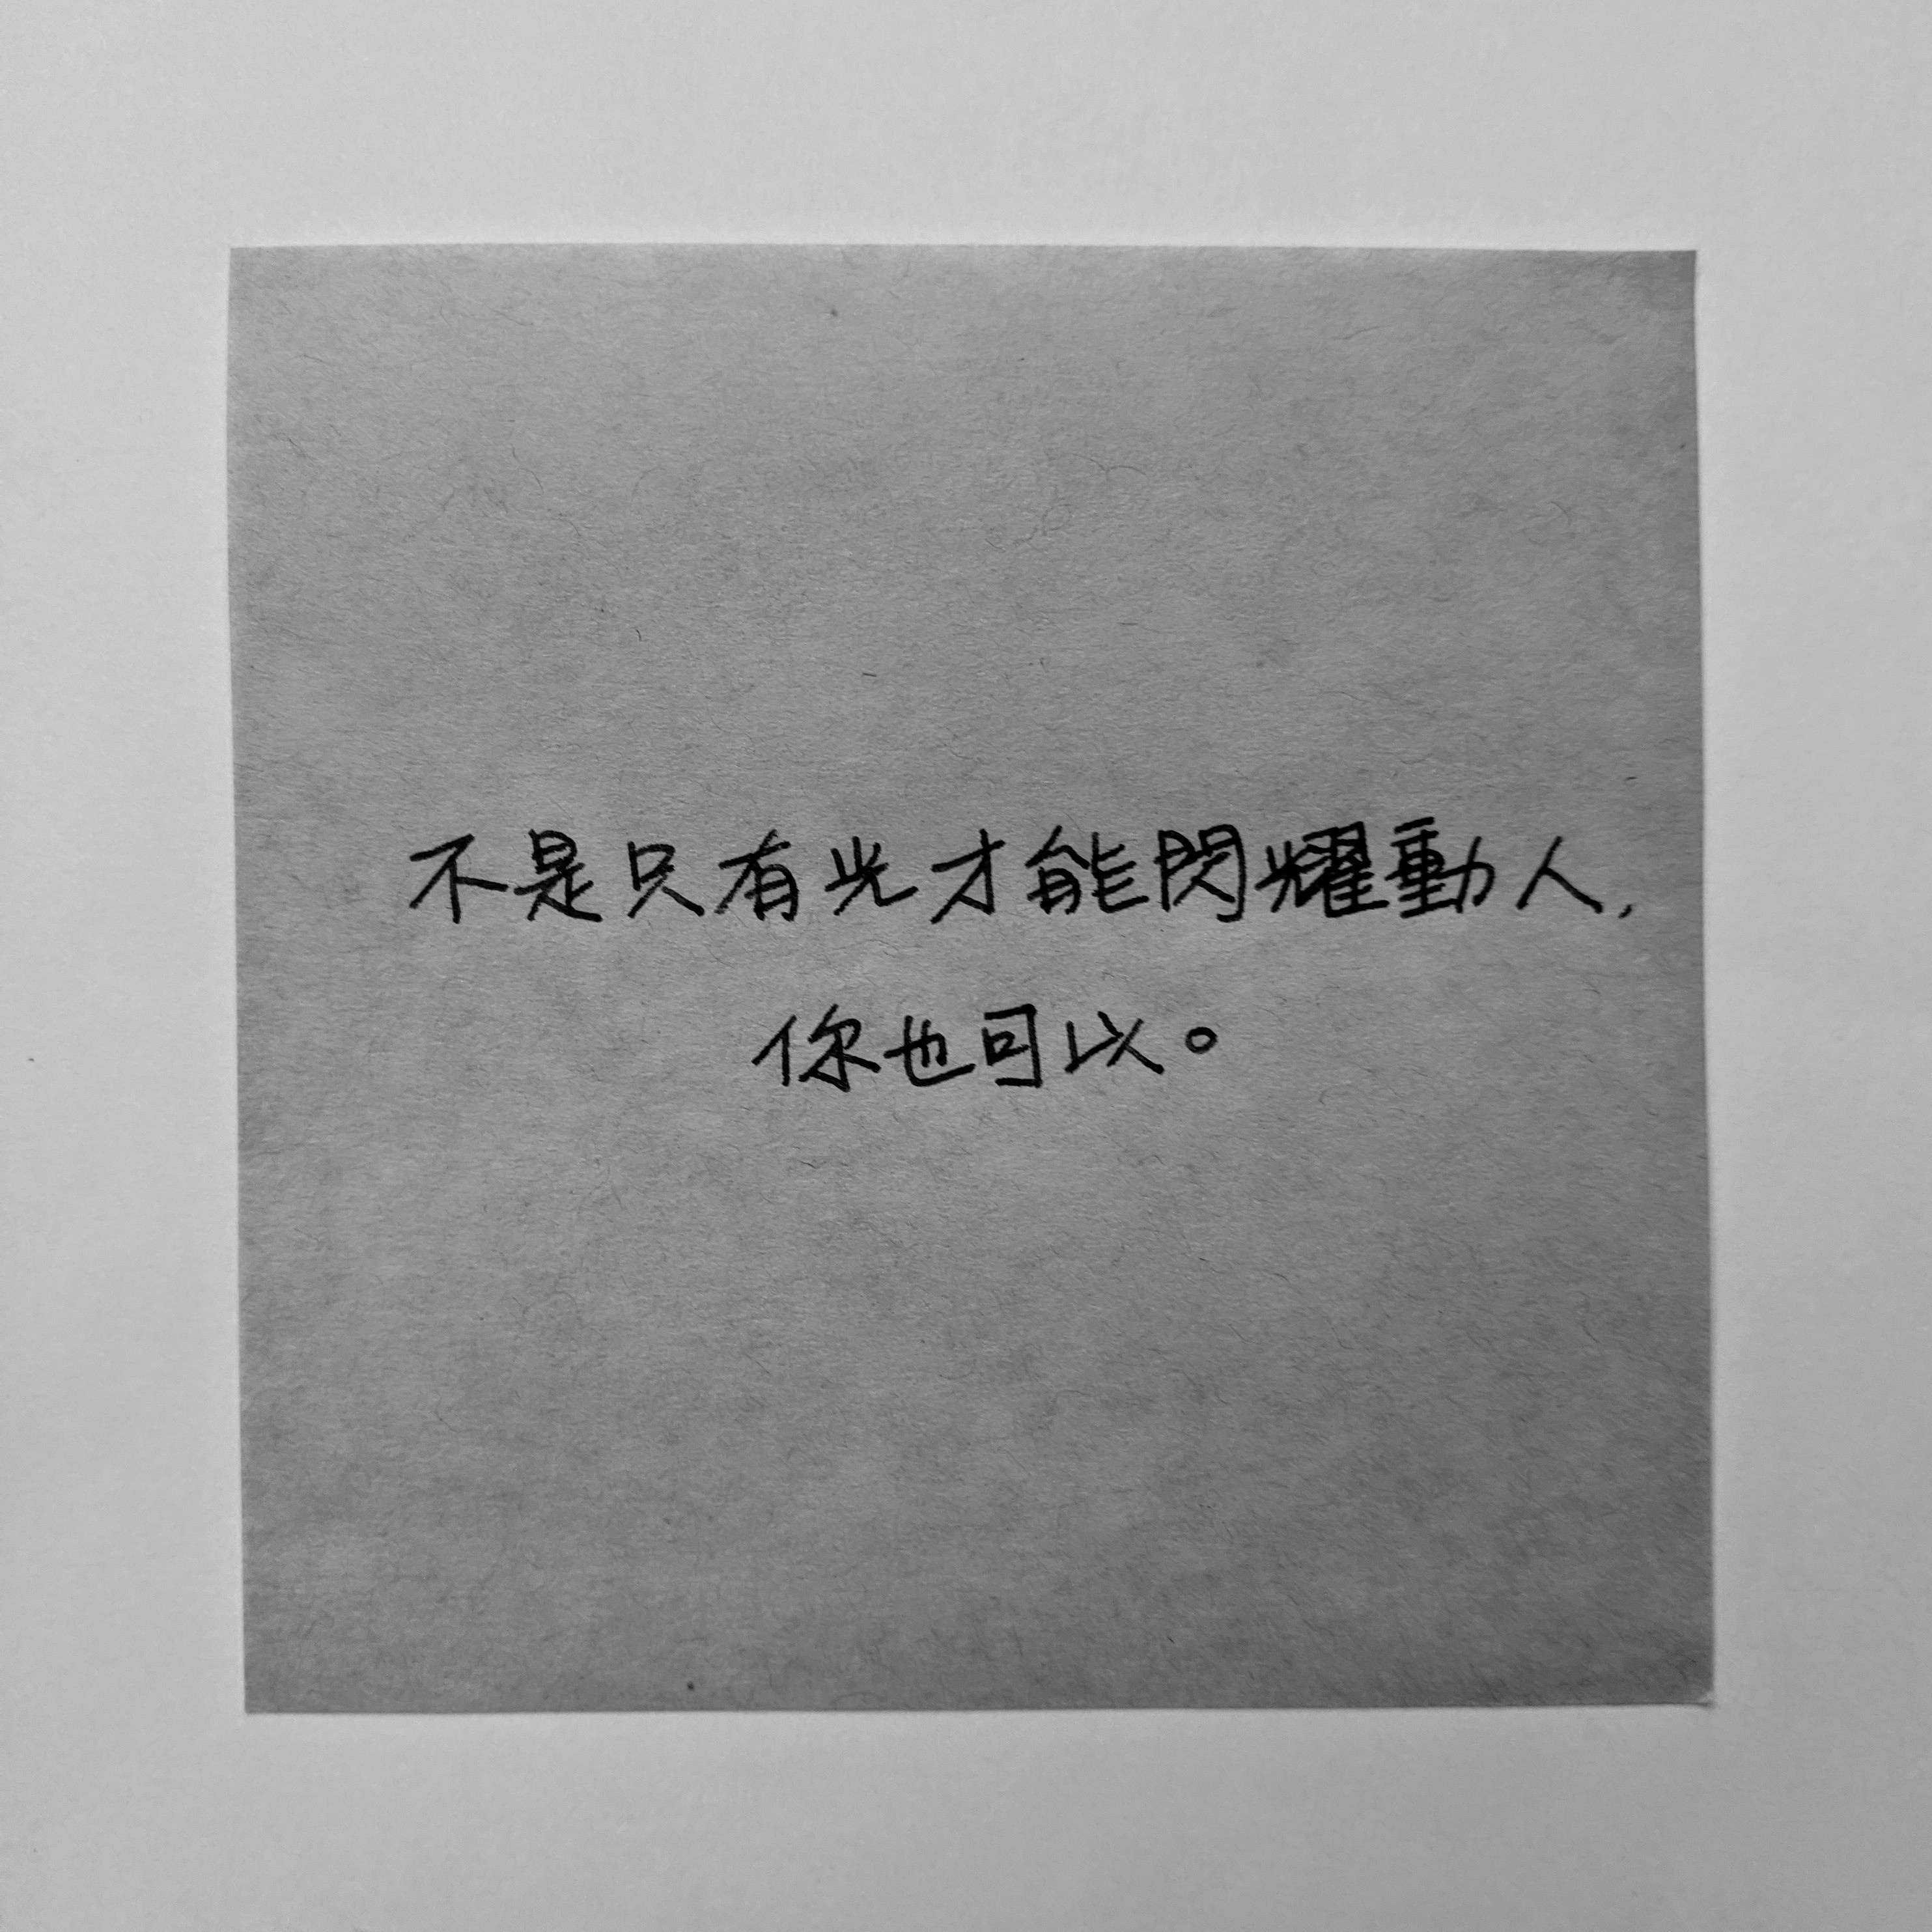 不是只有光才能閃耀動人,
你也可以。